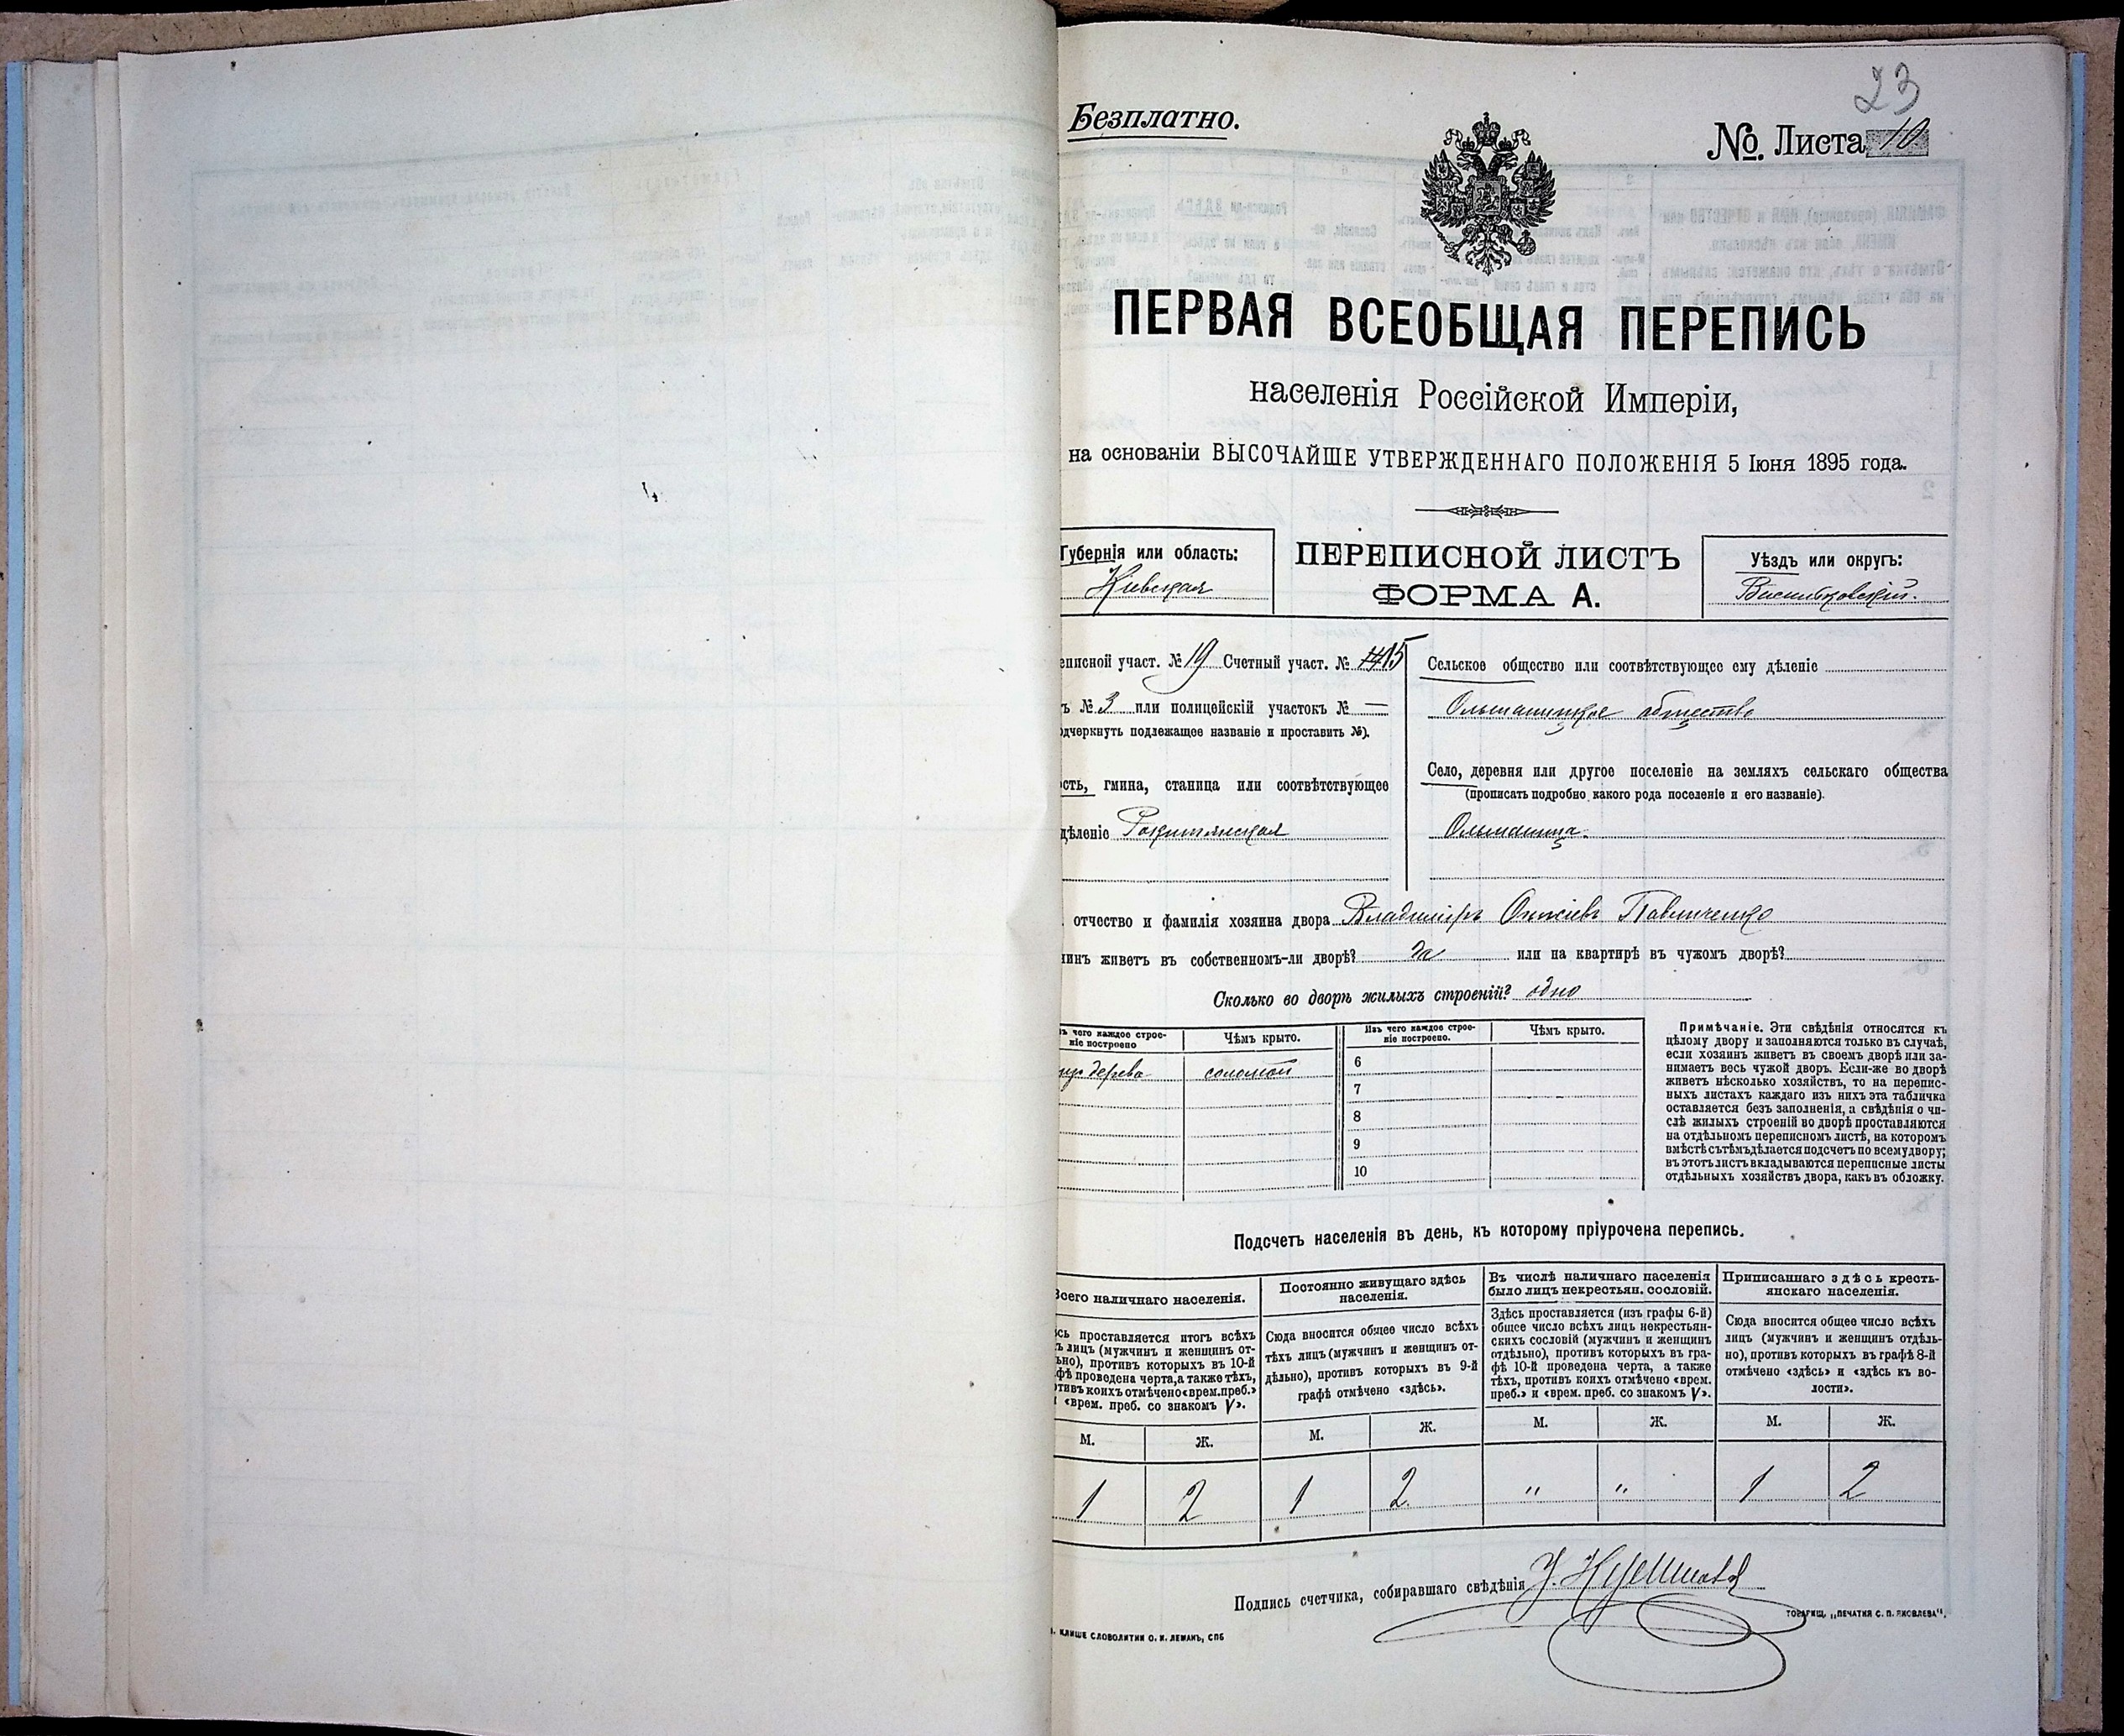 23
Безплатно.
№. Листа 10
ПЕРВАЯ ВСЕОБЩАЯ ПЕРЕПИСЬ
населенія Россійской Имперіи,
на основаніи ВЫСОЧАЙШЕ УТВЕРЖДЕННАГО ПОЛОЖЕНІЯ 5 Іюня 1895 года.
Губернія или область:
Кіевская
ПЕРЕПИСНОЙ ЛИСТЪ
ФОРМА А.
Уѣздъ или округъ:
Васильковскій.
еписной участ. № 19 Счетный участ. № 15
ъ № 3 или полицейскій участокъ № —
одчеркнуть подлежащее названіе и проставить №).
ость, гмина, станица или соотвѣтствующее
дѣленіе Рокитянская
Сельское общество или соотвѣтствующее ему дѣленіе
Ольшаницкое общество
Село, деревня или другое поселеніе на земляхъ сельскаго общества
(прописать подробно какого рода поселеніе и его названіе).
Ольшаница.
отчество и фамилія хозяина двора Владиміръ Павличенко
инъ живетъ въ собственномъ-ли дворѣ? да или на квартирѣ въ чужомъ дворѣ?
Сколько во дворѣ жилыхъ строеній? одно
ъ чего каждое строе-
ніе построено
Чѣмъ крыто.
Изъ чего каждое строе-
ніе построено.
Чѣмъ крыто.
изъ дерева соломой
6
7
8
9
10
Примѣчаніе. Эти свѣдѣнія относятся къ
цѣлому двору и заполняются только въ случаѣ,
если хозяинъ живетъ въ своемъ дворѣ или за-
нимаетъ весь чужой дворъ. Если-же во дворѣ
живетъ нѣсколько хозяйствъ, то на перепис-
ныхъ листахъ каждаго изъ нихъ эта табличка
оставляется безъ заполненія, а свѣдѣнія о чи-
слѣ жилыхъ строеній во дворѣ проставляются
на отдѣльномъ переписномъ листѣ, на которомъ
вмѣстѣ съ тѣмъ дѣлается подсчетъ по всему двору;
въ этотъ листъ вкладываются переписные листы
отдѣльныхъ хозяйствъ двора, какъ въ обложку.
Подсчетъ населенія въ день, къ которому пріурочена перепись.
Всего наличнаго населенія.
сь проставляется итогъ всѣхъ
ъ лицъ (мужчинъ и женщинъ от-
ьно), противъ которыхъ въ 10-й
фѣ проведена черта, а также тѣхъ,
тивъ коихъ отмѣчено «врем. преб.»
«врем. преб. со знакомъ V».
М. Ж.
1 2
Постоянно живущаго здѣсь
населенія.
Сюда вносится общее число всѣхъ
тѣхъ лицъ (мужчинъ и женщинъ от-
дѣльно), противъ которыхъ въ 9-й
графѣ отмѣчено «здѣсь».
М. Ж.
1 2
Въ числѣ наличнаго населенія
было лицъ некрестьян. сословій.
Здѣсь проставляется (изъ графы 6-й)
общее число всѣхъ лицъ некрестьян-
скихъ сословій (мужчинъ и женщинъ
отдѣльно), противъ которыхъ въ гра-
фѣ 10-й проведена черта, а также
тѣхъ, противъ коихъ отмѣчено «врем.
преб.» и «врем. преб. со знакомъ V».
М. Ж.
" "
Приписаннаго здѣсь кресть-
янскаго населенія.
Сюда вносится общее число всѣхъ
лицъ (мужчинъ и женщинъ отдѣль-
но), противъ которыхъ въ графѣ 8-й
отмѣчено «здѣсь» и «здѣсь къ во-
лости».
М. Ж.
1 2
Подпись счетчика, собиравшаго свѣдѣнія
КЛИШЕ СЛОВОЛИТНИ О. И. ЛЕМАНЪ, СПБ
ТОВАРИЩ. „ПЕЧАТНЯ С. П. ЯКОВЛЕВА".